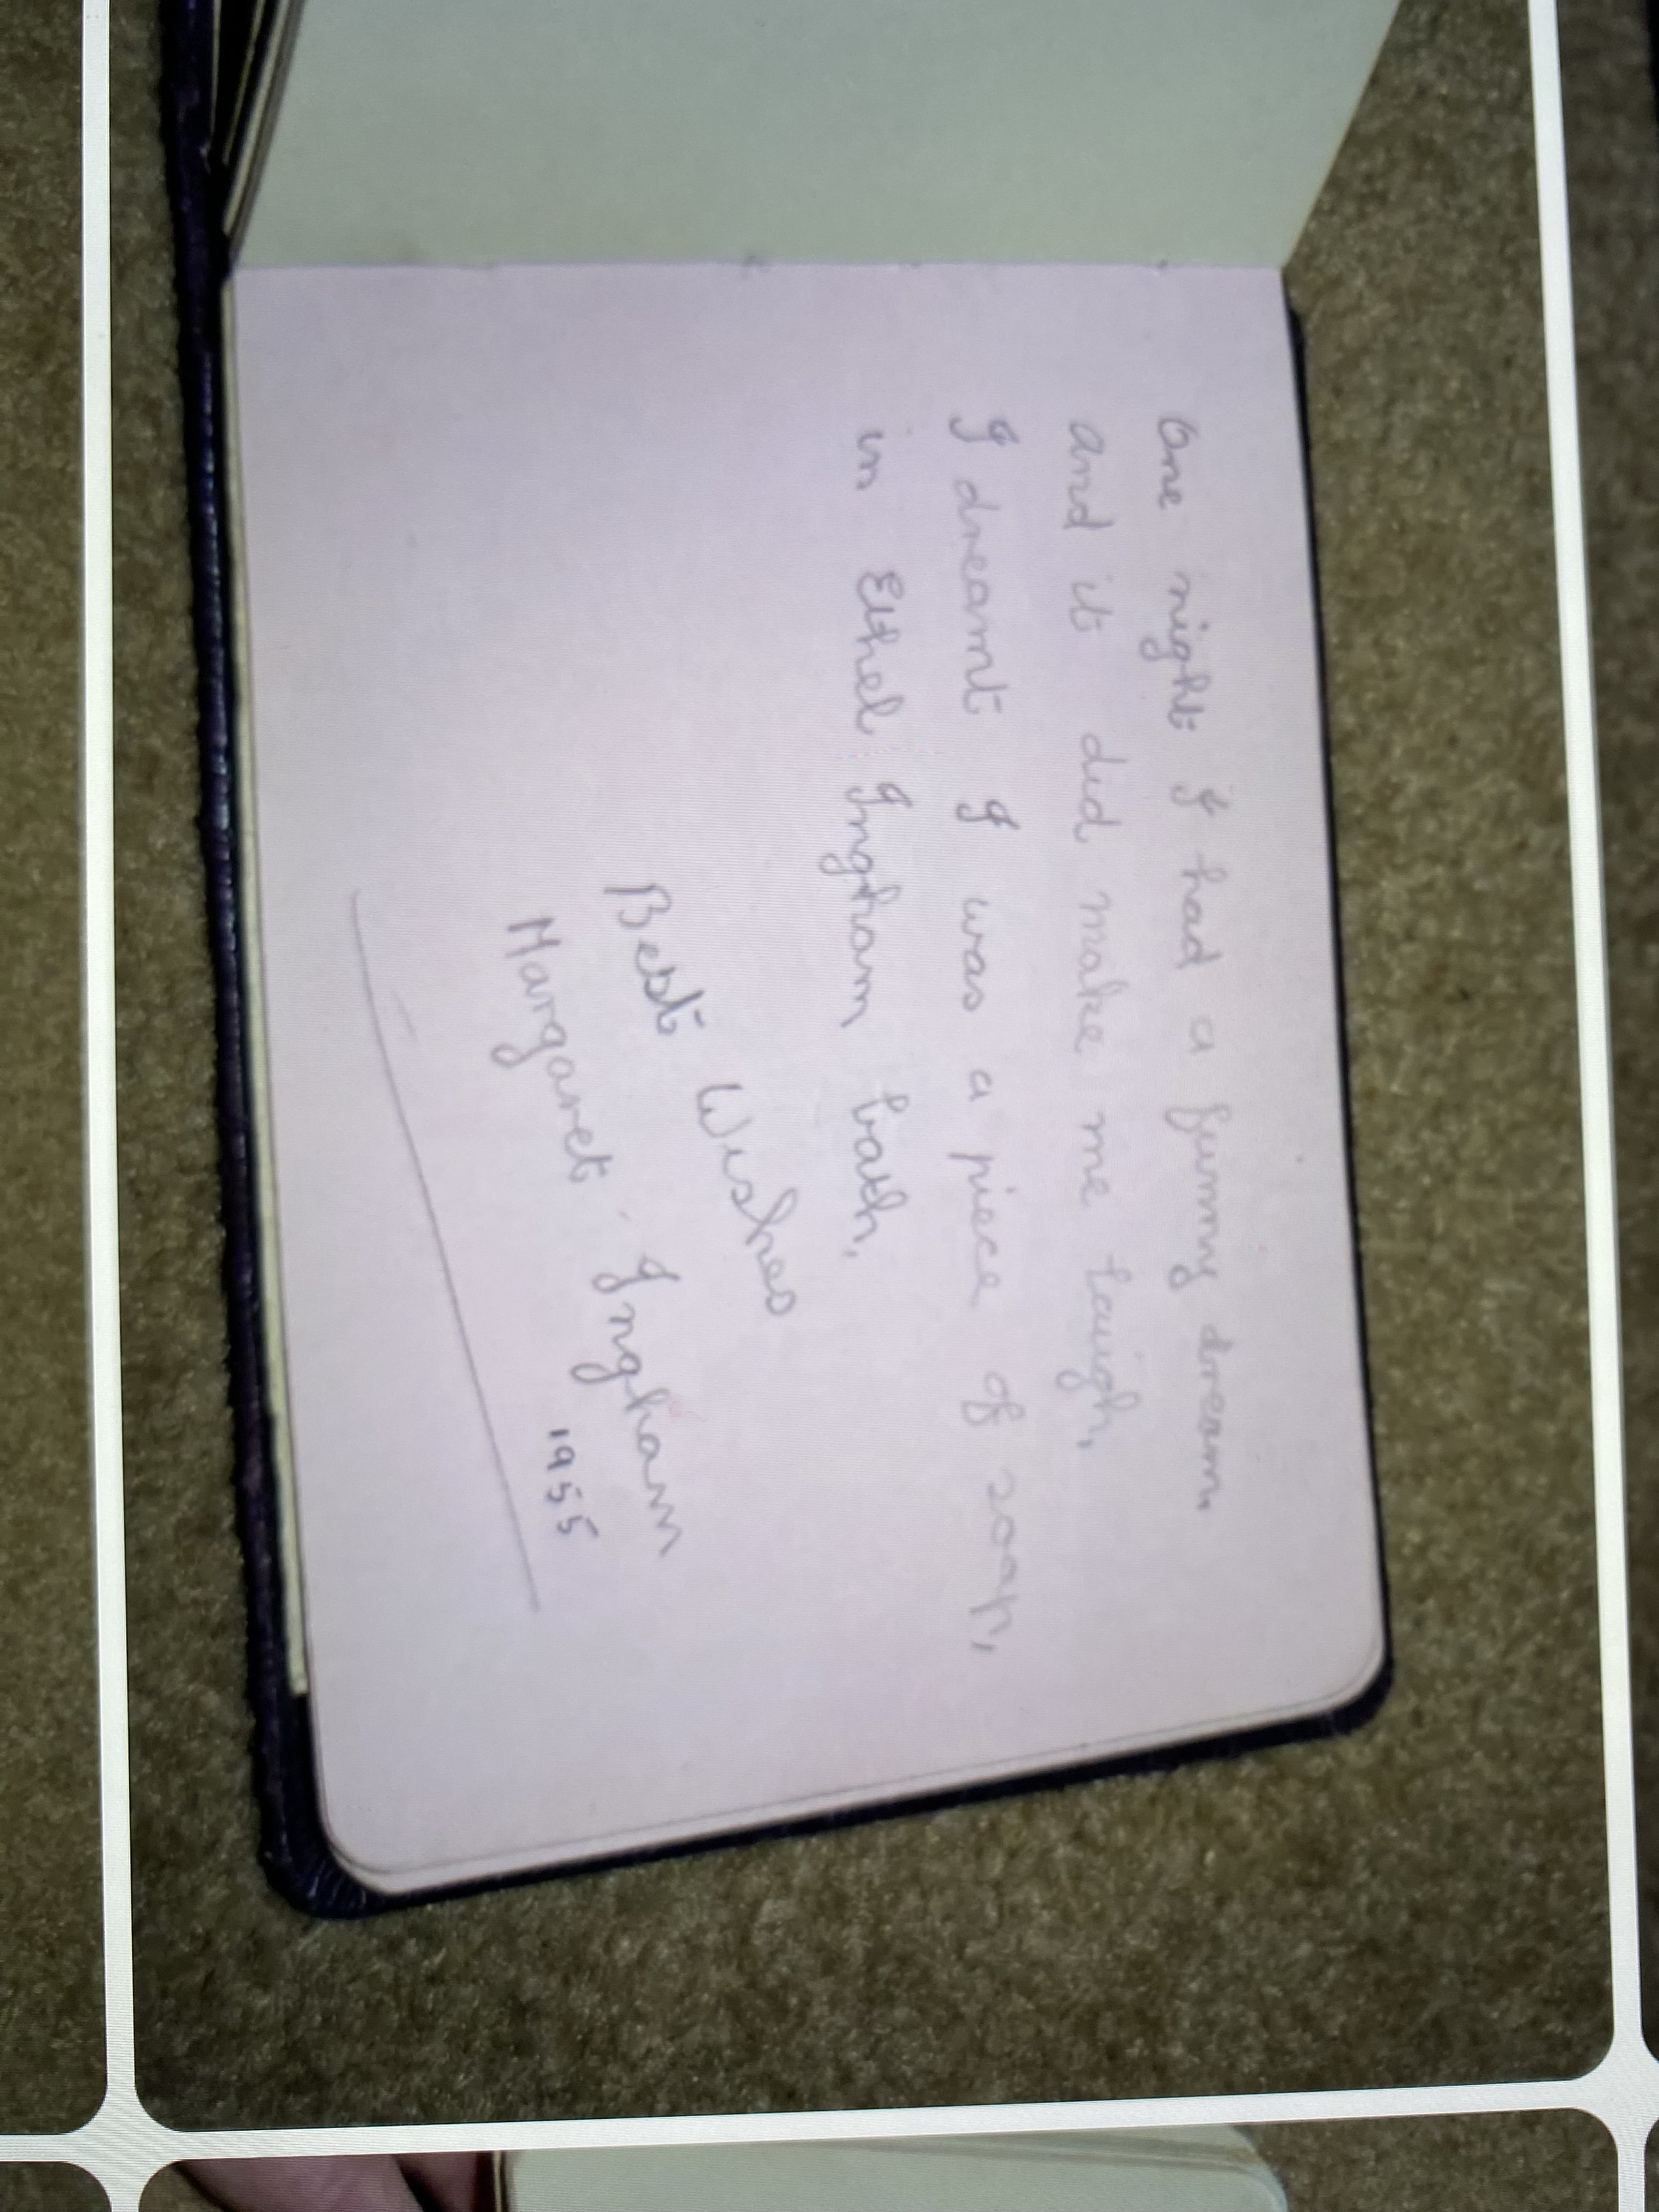 One night I had a funny dream,
and it did make me laugh,
I dreamt I was a piece of soap,
in Ethel Ingham bath,
Best Wishes
Margaret Ingham
1955